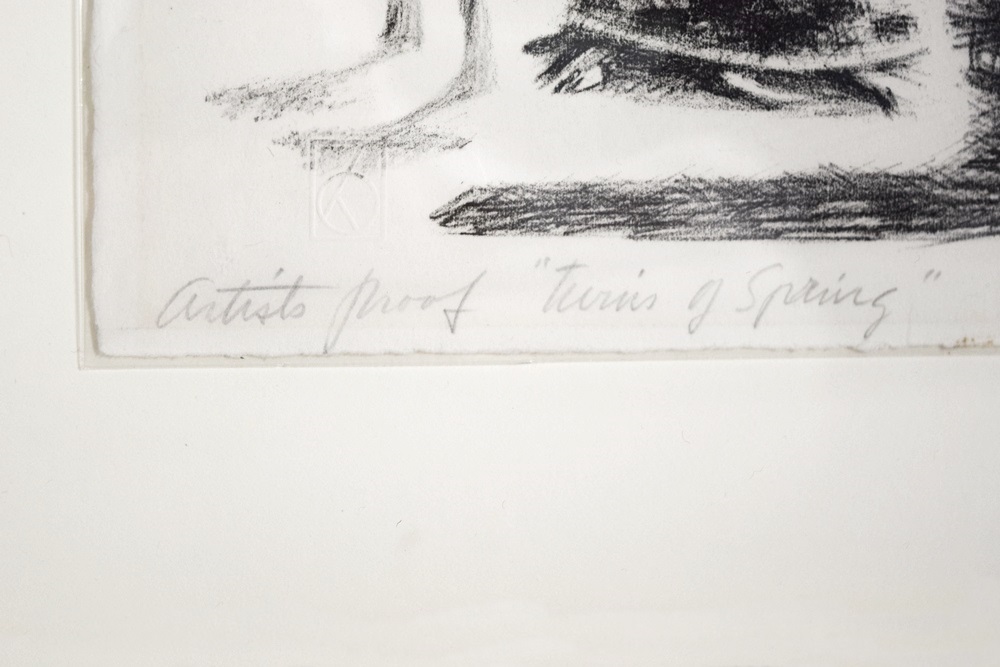 Artists proof "Twins of Spring"